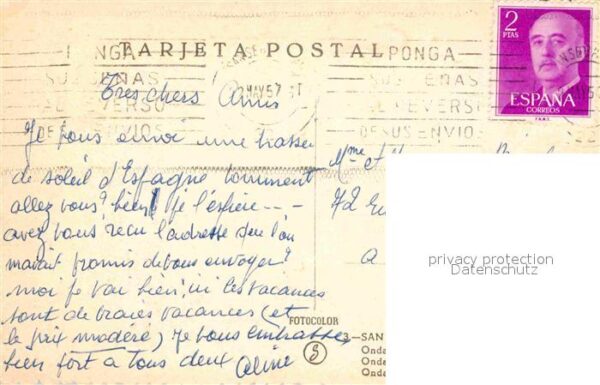 TARJETA POSTAL
PONGA
SUS SEÑAS
AL REVERSO
DE SUS ENVIOS
MAY 57
2
PTAS
ESPAÑA
CORREOS
Très chers Amis
Je vous envoi une
de soleil d'Espagne Comment
allez vous? bien je l'espère - - -
avez vous recu l'adresse que l'on
m'avait promis de vous envoyer?
moi je vai bien, ici les vacances
sont de vraies vacances (et
le prix modéré) Je vous embrasse
bien fort a tous deux Aline
Mme
72
a
privacy protection
Datenschutz
FOTOCOLOR
5
3-SAN
Onda
Onda
Onda